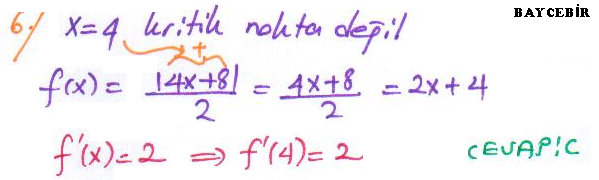 BAYCEBİR
6-) x=4 kritik nokta değil
+
f(x) = |4x+8| / 2 = 4x+8 / 2 = 2x+4
f'(x) = 2 ⇒ f'(4) = 2 CEVAP:C